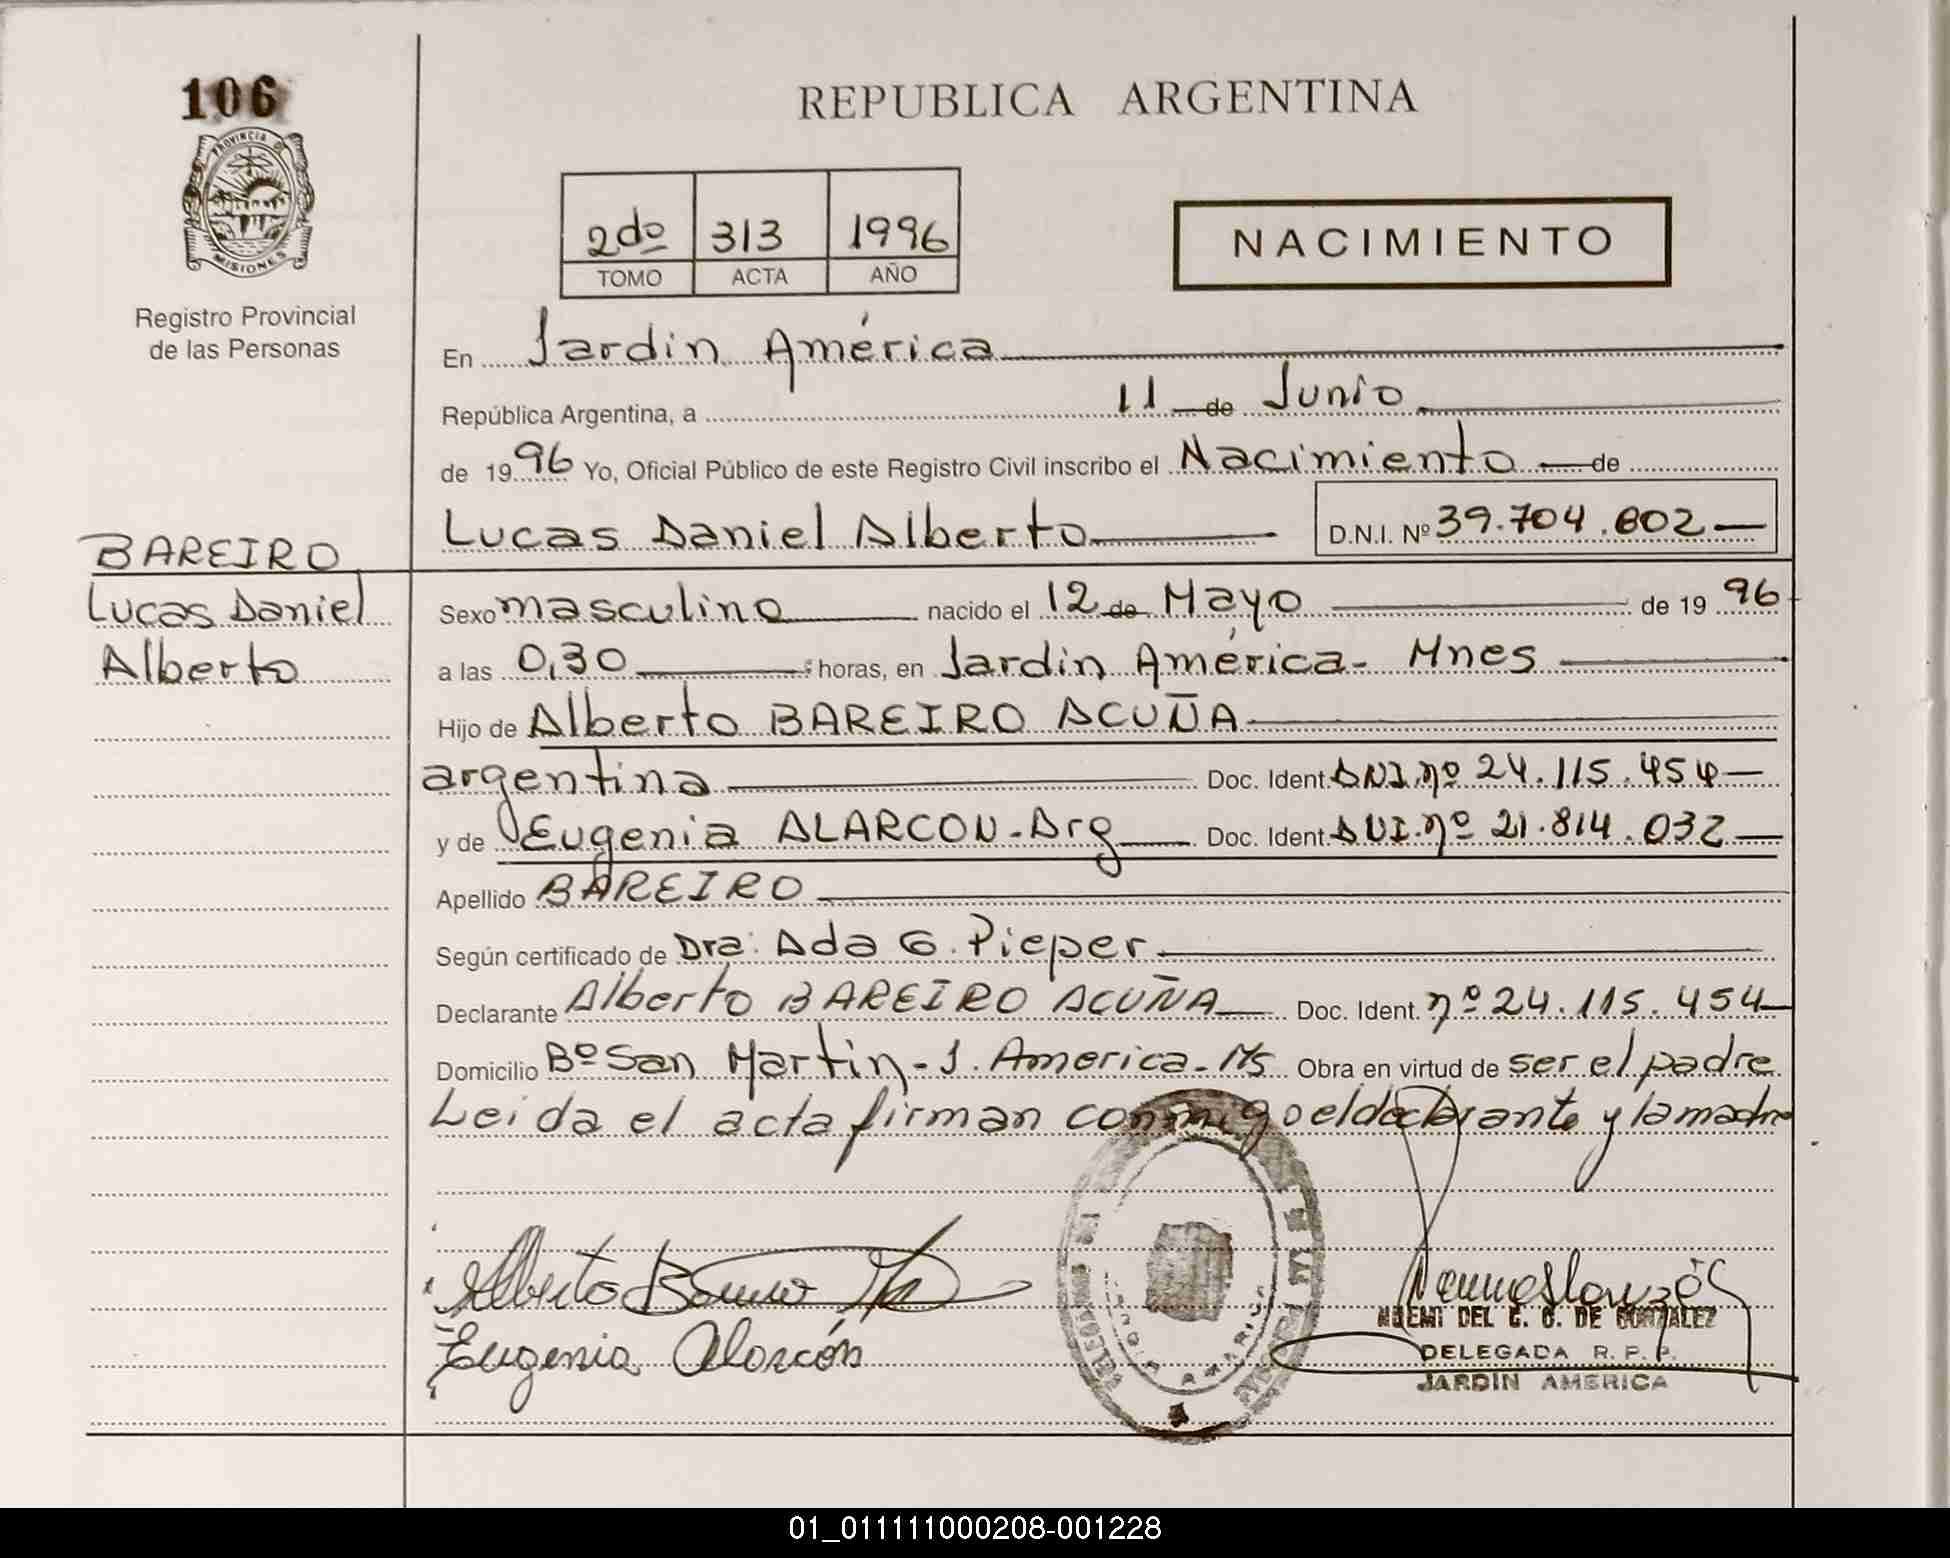 106
REPUBLICA ARGENTINA
PROVINCIA DE
MISIONES
Registro Provincial
de las Personas
2do 313 1996
TOMO ACTA AÑO
NACIMIENTO
En Jardin América
República Argentina, a 11 de Junio
de 1996 Yo, Oficial Público de este Registro Civil inscribo el Nacimiento de
Lucas Daniel Alberto D.N.I. Nº 39.704.802
BAREIRO
Lucas Daniel
Alberto
Sexo masculino nacido el 12 de Mayo de 1996
a las 0,30 horas, en Jardin América- Mnes
Hijo de Alberto BAREIRO ACUÑA
argentina Doc. Ident. DNI.nº 24.115.454
y de Eugenia ALARCON-Arg Doc. Ident. DNI.nº 21.814.032
Apellido BAREIRO
Según certificado de Dra: Ada G. Pieper
Declarante Alberto BAREIRO ACUÑA Doc. Ident. nº 24.115.454
Domicilio Bº San Martin-J. America-Ms Obra en virtud de ser el padre
Leida el acta firman conmigo el declarante y la madre
Alberto Bareiro
Eugenia Alarcón
NOEMI DEL C. G. DE GONZALEZ
DELEGADA R. P. P.
JARDIN AMERICA
01_011111000208-001228